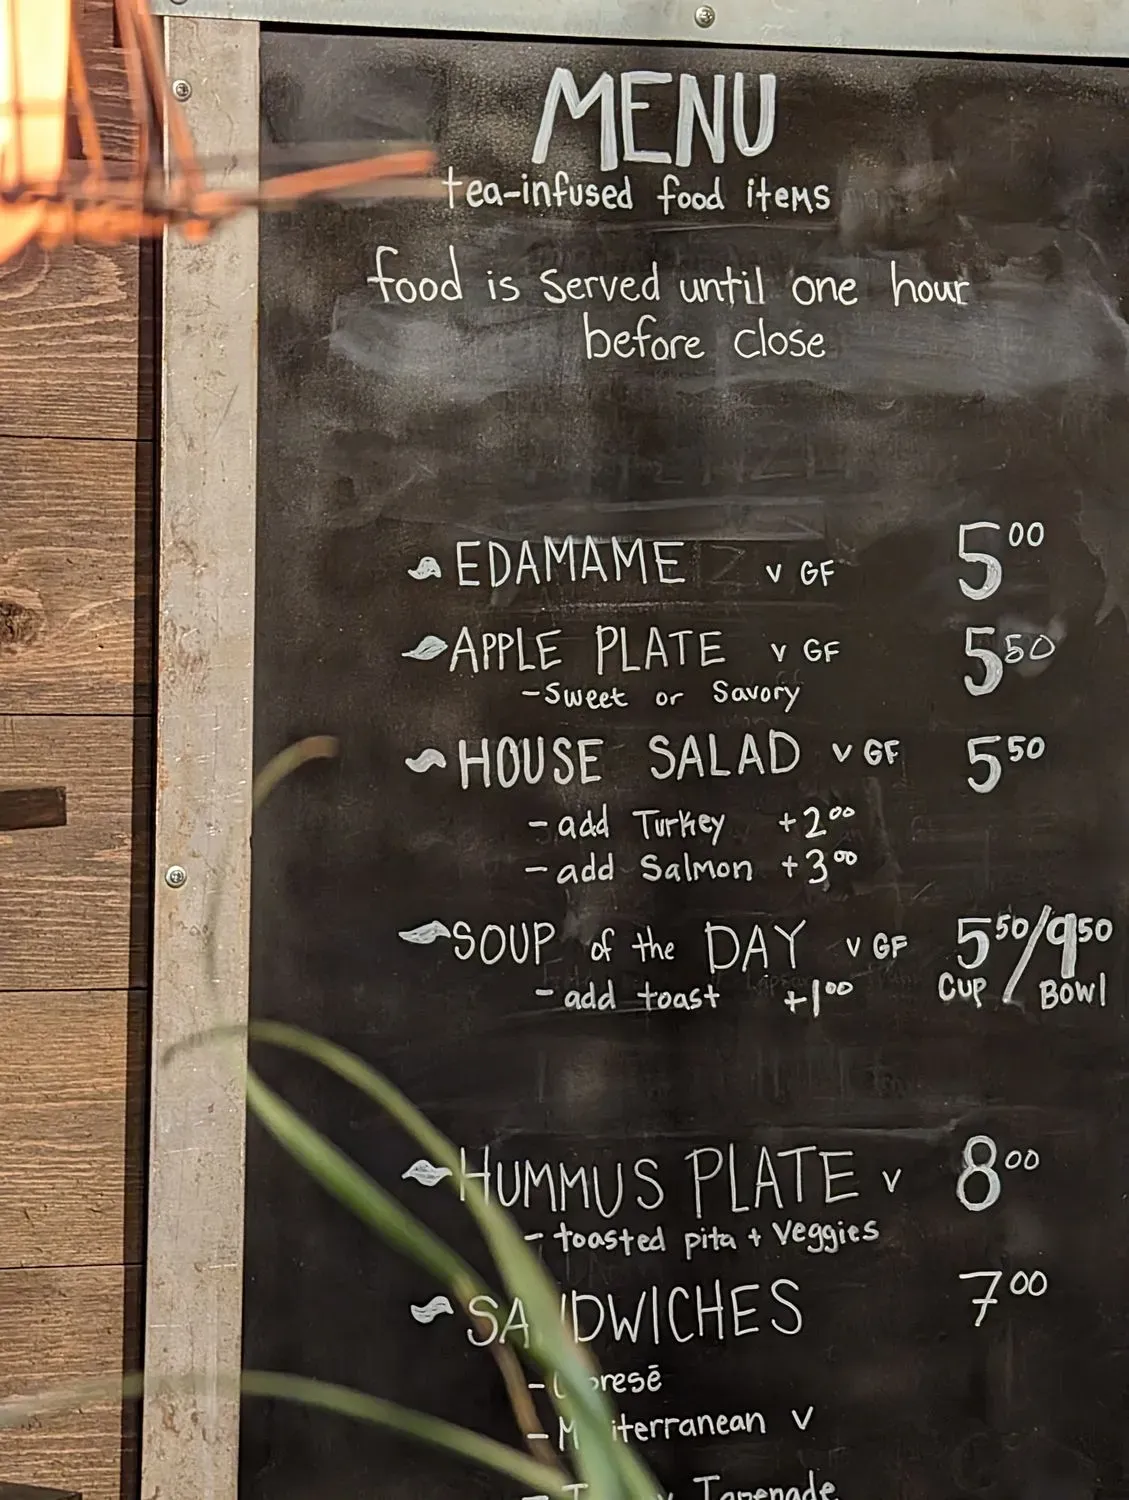 MENU
tea-infused food items
food is served until one hour
before close
EDAMAME V GF 5 00
APPLE PLATE V GF 5 50
- Sweet or Savory
HOUSE SALAD V GF 5 50
- add Turkey +2 00
- add Salmon +3 00
SOUP of the DAY V GF 5 50/9 50
- add toast +1 00 Cup / Bowl
HUMMUS PLATE V 8 00
- toasted pita + Veggies
SANDWICHES 7 00
- Mediterranean V
Tapenade